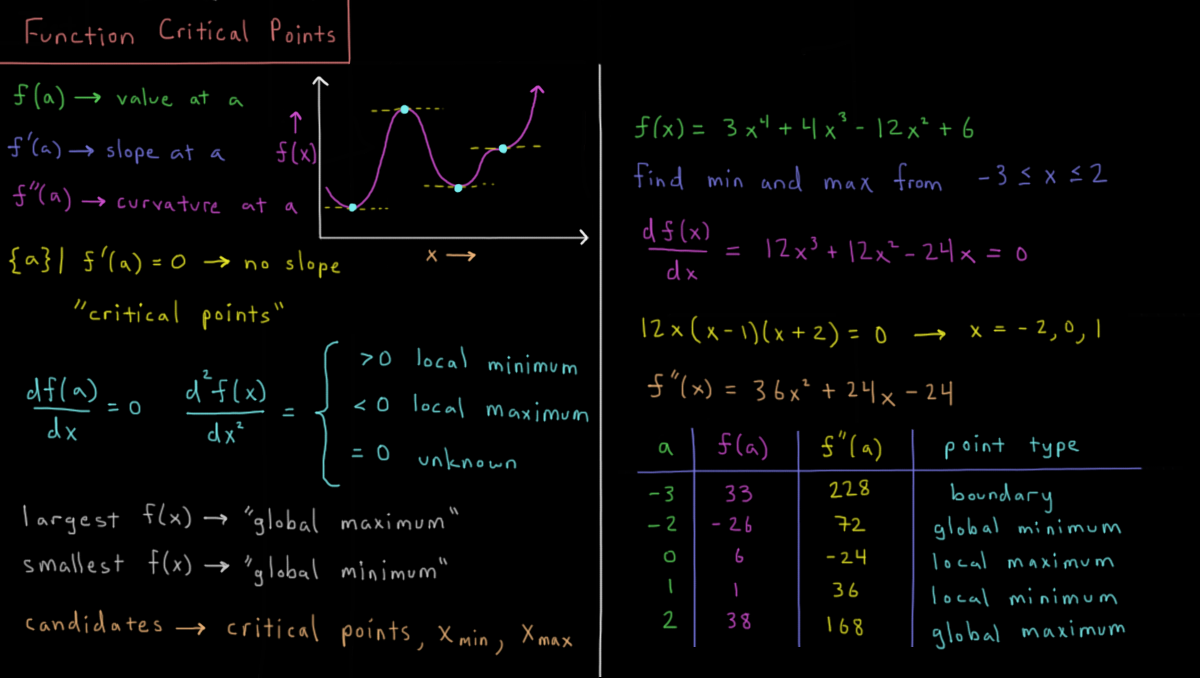 Function Critical Points
f(a) → value at a
f'(a) → slope at a
f"(a) → curvature at a
{a}| f'(a) = 0 → no slope
"critical points"
f(x)
x →
df(a)/dx = 0 d²f(x)/dx² = { >0 local minimum
<0 local maximum
=0 unknown
largest f(x) → "global maximum"
smallest f(x) → "global minimum"
candidates → critical points, Xmin, Xmax
f(x) = 3x⁴ + 4x³ - 12x² + 6
find min and max from -3 ≤ x ≤ 2
df(x)/dx = 12x³ + 12x² - 24x = 0
12x(x-1)(x+2) = 0 → x = -2, 0, 1
f"(x) = 36x² + 24x - 24
a f(a) f"(a) point type
-3 33 228 boundary
-2 -26 72 global minimum
0 6 -24 local maximum
1 1 36 local minimum
2 38 168 global maximum